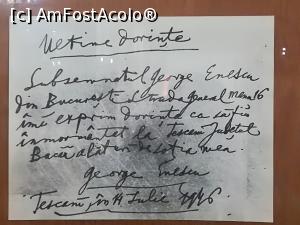 [c] AmFostAcolo®
Ultime dorințe
Subsemnatul George Enescu
din București Strada General 16
îmi exprim dorința ca să fiu
înmormântat la Tescani Județul
Bacău alături de soția mea.
George Enescu
Tescani 14 Iulie 1946.